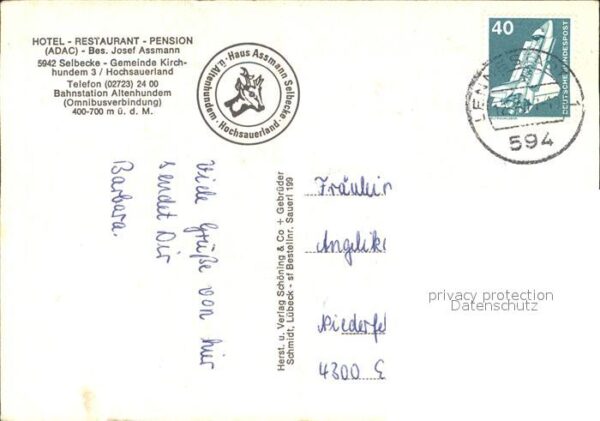 HOTEL - RESTAURANT - PENSION
(ADAC) - Bes. Josef Assmann
5942 Selbecke - Gemeinde Kirch-
hundem 3 / Hochsauerland
Telefon (02723) 24 00
Bahnstation Altenhundem
(Omnibusverbindung)
400-700 m ü. d. M.
Haus Assmann Selbecke
ü. Altenhundem
Hochsauerland
40
DEUTSCHE BUNDESPOST
LENNES
1
594
Viele Grüße von hier
sendet Dir
Barbara.
Herst. u. Verlag Schöning & Co + Gebrüder
Schmidt, Lübeck - sf Bestellnr. Sauerl 199
Fräulein
Angelik
Niederfe
4300 E
privacy protection
Datenschutz